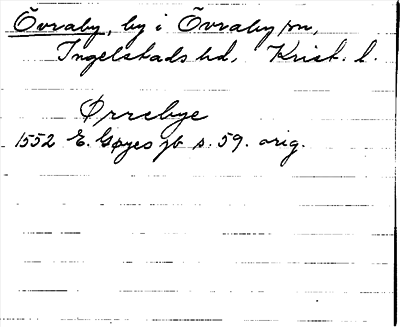 Övraby, by i Övraby sn,
Ingelstads hd, Krist. l.
Ørrebye
1552 E. Gøyes jb s. 59. orig.